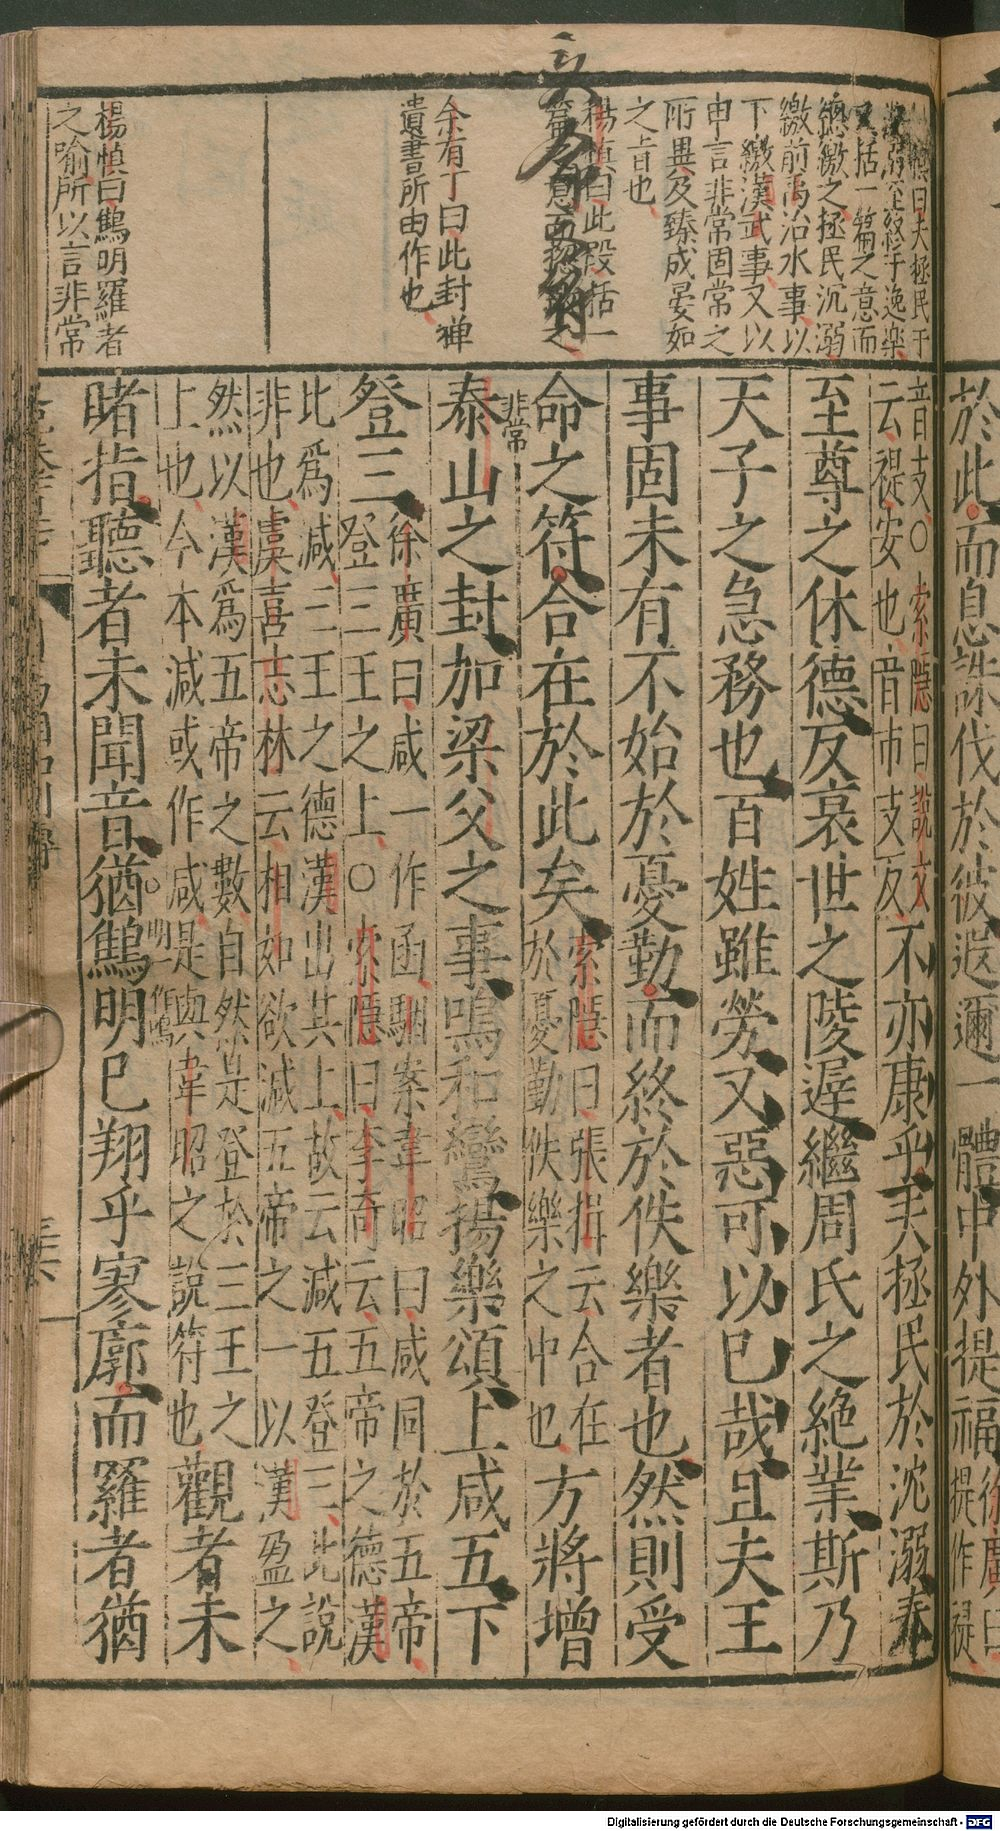 於此而息誅伐於彼遐邇一體中外提福
徐廣曰
提作禔
音支○索隱曰說文
云禔安也音市支反
不亦康乎夫拯民於沈溺奉
至尊之休德反衰世之陵遲繼周氏之絶業斯乃
天子之急務也百姓雖勞又惡可以已哉且夫王
事固未有不始於憂勤而終於佚樂者也然則受
命之符合在於此矣
索隱曰張揖云合在
於憂勤佚樂之中也
方將增
非常
泰山之封加梁父之事鳴和鸞揚樂頌上咸五下
登三
徐廣曰咸一作函駰案韋昭曰咸同於五帝
登三王之上○索隱曰李奇云五帝之德漢
比爲減三王之德漢出其上故云減五登三此說
非也虞喜志林云相如欲減五帝之一以漢盈之
然以漢爲五帝之數自然是登於三王之
上也今本減或作咸是與韋昭之說符也
觀者未
睹指聽者未聞音猶鷦明已翔乎寥廓而羅者猶
明一
作鵬
夫拯民于
沉溺至終于逸樂
又括一篇之意而
總繳之拯民沉溺
繳前禹治水事以
下繳漢武事又以
申言非常固常之
所異及臻成晏如
之旨也
楊慎曰此段括一
余有丁曰此封禪
遺書所由作也
楊慎曰鷦明羅者
之喻所以言非常
三十六
Digitalisierung gefördert durch die Deutsche Forschungsgemeinschaft - DFG